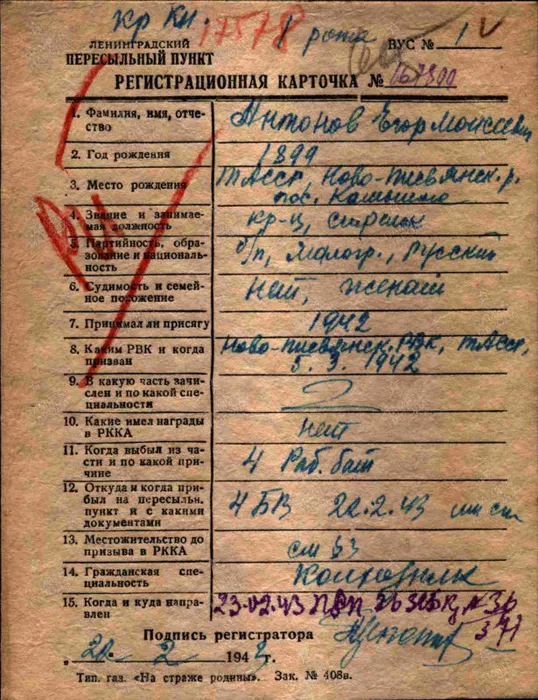 кр кн. 17578 8 рота
ЛЕНИНГРАДСКИЙ ВУС № 1
ПЕРЕСЫЛЬНЫЙ ПУНКТ
РЕГИСТРАЦИОННАЯ КАРТОЧКА №
1. Фамилия, имя, отчество Антонов Егор Моисеевич
2. Год рождения 1899
3. Место рождения ТАССР, Ново-Письмянск. р.
пос. Камышла
4. Звание и занимаемая должность кр-ц, стрелок
5. Партийность, образование и национальность б/п, малогр., Русский
6. Судимость и семейное положение нет, женат
7. Принимал ли присягу 1942
8. Каким РВК и когда призван Ново-Письмянск. РВК, ТАССР,
5.3.1942
9. В какую часть зачислен и по какой специальности
10. Какие имел награды в РККА нет
11. Когда выбыл из части и по какой причине 4 Раб. бат
12. Откуда и когда прибыл на пересыльн. пункт и с какими документами 4 БВ 22.2.43
13. Местожительство до призыва в РККА см §3
14. Гражданская специальность
15. Когда и куда направлен 23.02.43 № 36
371
Подпись регистратора
2 194
Тип. газ. «На страже родины». Зак. № 408в.